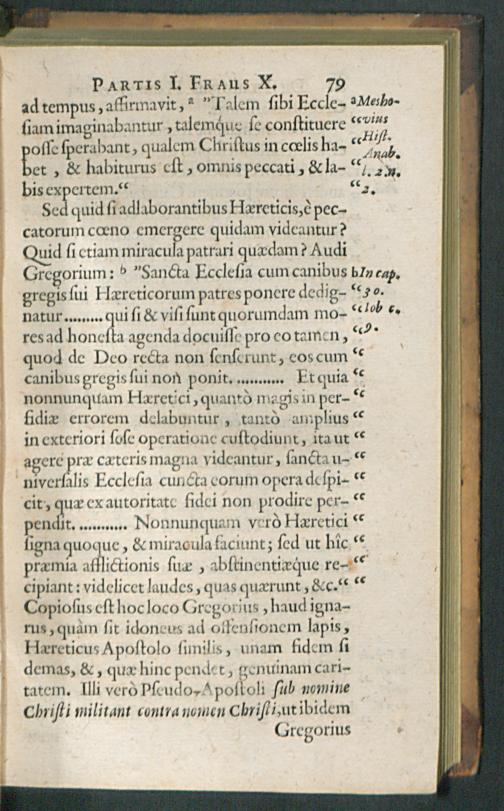 PARTIS I. FRAUS X. 79
ad tempus, affirmavit, a "Talem sibi Eccle- a Mesho-
siam imaginabantur, talemque se constituere “vius
posse sperabant, qualem Christus in cœlis ha- “Hist.
bet, & habiturus est, omnis peccati, & la- “Anab. l. 2. n.
bis expertem.“ “2.
Sed quid si adlaborantibus Hæreticis, è pec-
catorum cœno emergere quidam videantur?
Quid si etiam miracula patrari quædam? Audi
Gregorium: b "Sancta Ecclesia cum canibus b In cap.
gregis sui Hæreticorum patres ponere dedig- “30.
natur ......... qui si & visi sunt quorumdam mo- “Iob c.
res ad honesta agenda docuisse pro eo tamen, “9.
quod de Deo recta non senserunt, eos cum “
canibus gregis sui non ponit. ........... Et quia “
nonnunquam Hæretici, quantò magis in per- “
fidiæ errorem delabuntur, tantò amplius “
in exteriori sese operatione custodiunt, ita ut “
agere præ cæteris magna videantur, sancta u- “
niversalis Ecclesia cuncta eorum opera despi- “
cit, quæ ex autoritate fidei non prodire per- “
pendit. ........... Nonnunquam verò Hæretici “
signa quoque, & miracula faciunt; sed ut hîc “
præmia afflictionis suæ, abstinentiæque re- “
cipiant: videlicet laudes, quas quærunt, &c.“ “
Copiosus est hoc loco Gregorius, haud igna-
rus, quàm sit idoneus ad offensionem lapis,
Hæreticus Apostolo similis, unam fidem si
demas, &, quæ hinc pendet, genuinam cari-
tatem. Illi verò Pseudo-Apostoli sub nomine
Christi militant contra nomen Christi, ut ibidem
Gregorius